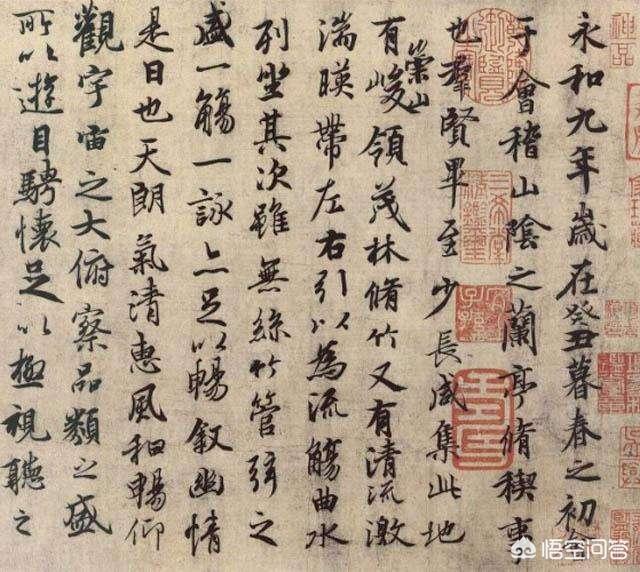 永和九年歲在癸丑暮春之初會
于會稽山陰之蘭亭脩稧事
也羣賢畢至少長咸集此地
有崇山峻領茂林脩竹又有清流激
湍暎帶左右引以為流觴曲水
列坐其次雖無絲竹管弦之
盛一觴一詠亦足以暢敘幽情
是日也天朗氣清惠風和暢仰
觀宇宙之大俯察品類之盛
所以遊目騁懷足以極視聽之
神品
三希堂精鑑璽
宜子孫
悟空问答